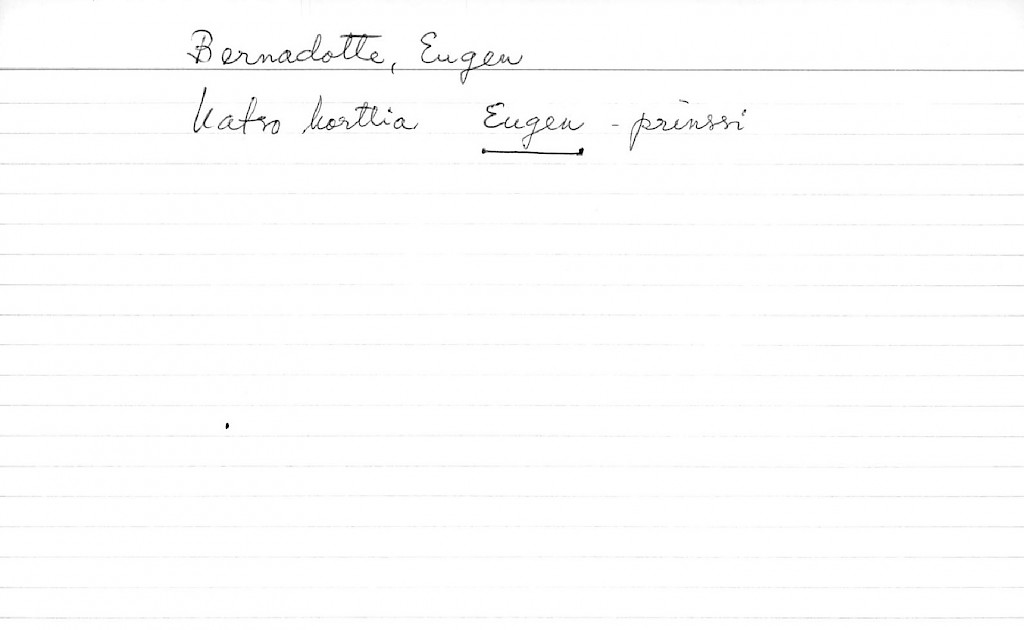 Bernadotte, Eugen
Katso korttia Eugen - prinssi